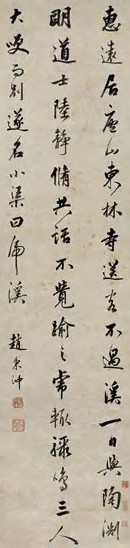 惠遠居廬山東林寺送客不過溪一日與陶淵
明道士陸靜脩共話不覺踰之常輒驟鳴三人
大咲而別遂名小渠曰虎溪
趙秉沖